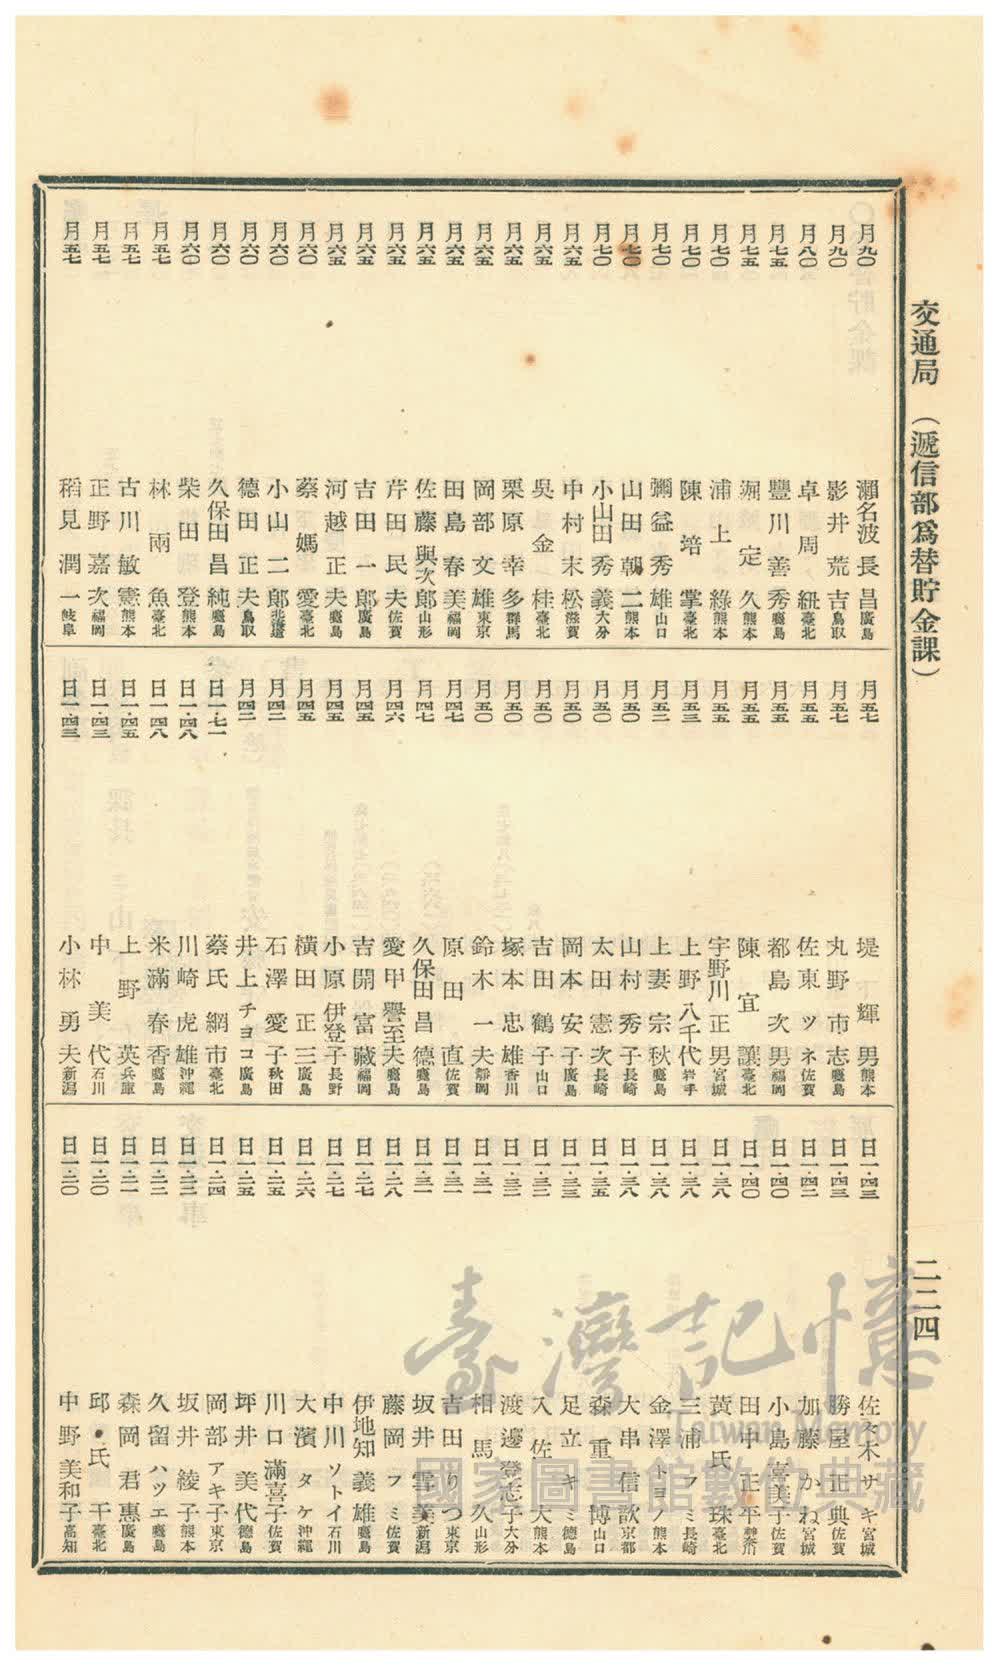 交通局　（遞信部爲替貯金課）
二二四
月九〇　瀨名波長昌　廣島
月九〇　影井荒吉　鳥取
月八〇　卓周紐　臺北
月七五　豐川善秀　鹿島
月七五　堀定久　熊本
月七〇　浦上綠　熊本
月七〇　陳培掌　臺北
月七〇　彌益秀雄　山口
月七〇　山田朝二　熊本
月七〇　小山田秀義　大分
月六五　中村末松　滋賀
月六五　吳金桂　臺北
月六五　栗原幸多　群馬
月六五　岡部文雄　東京
月六五　田島春美　福岡
月六五　佐藤與次郎　山形
月六五　芹田民夫　佐賀
月六五　吉田一郎　廣島
月六五　河越正夫　鹿島
月六〇　蔡媽愛　臺北
月六〇　小山二郎　北海道
月六〇　德田正夫　鳥取
月六〇　久保田昌純　鹿島
月六〇　柴田登　熊本
月五七　林雨魚　臺北
月五七　古川敏憲　熊本
月五七　正野嘉次　福岡
月五七　稻見潤一　岐阜
月五七　堤輝男　熊本
月五七　丸野市志　鹿島
月五五　佐東ツネ　佐賀
月五五　都島次男　福岡
月五五　陳宜讓　臺北
月五五　宇野川正男　宮城
月五三　上野八千代　岩手
月五二　上妻宗秋　鹿島
月五〇　山村秀子　長崎
月五〇　太田憲次　長崎
月五〇　岡本安子　廣島
月五〇　吉田鶴子　山口
月五〇　塚本忠雄　香川
月五〇　鈴木一夫　靜岡
月四七　原田直　佐賀
月四七　久保田昌德　鹿島
月四六　愛甲譽至夫　鹿島
月四五　吉開富藏　福岡
月四五　小原伊登子　長野
月四五　橫田正三　廣島
月四二　石澤愛子　秋田
月四二　井上チヨコ　廣島
日一・七一　蔡氏網市　臺北
日一・四八　川崎虎雄　沖繩
日一・四八　米滿春香　鹿島
日一・四五　上野英　兵庫
日一・四三　中美代　石川
日一・四三　小林勇夫　新潟
日一・四三　佐々木サキ　宮城
日一・四三　勝屋正典　佐賀
日一・四二　加藤かね　宮城
日一・四〇　小島喜美子　佐賀
日一・四〇　田中正平
日一・三八　黃氏珠　臺北
日一・三八　三浦フミ　長崎
日一・三八　金澤トヨノ　熊本
日一・三八　大串信欽　京都
日一・三五　森重博　山口
日一・三三　足立キミ　德島
日一・三二　入佐大　熊本
日一・三二　渡邊登志子　大分
日一・三一　相馬久　山形
日一・三一　吉田りつ　東京
日一・三一　坂井雪美　新潟
日一・二八　藤岡フミ　佐賀
日一・二七　伊地知義雄　鹿島
日一・二七　中川ソトイ　石川
日一・二六　大濱タケ　沖繩
日一・二五　川口滿喜子　佐賀
日一・二五　坪井美代　德島
日一・二四　岡部アキ子　東京
日一・二二　坂井綾子　熊本
日一・二二　久留ハツエ　鹿島
日一・二一　森岡君惠　廣島
日一・二〇　邱氏干　臺北
日一・二〇　中野美和子　高知
臺灣記憶
Taiwan Memory
國家圖書館數位典藏